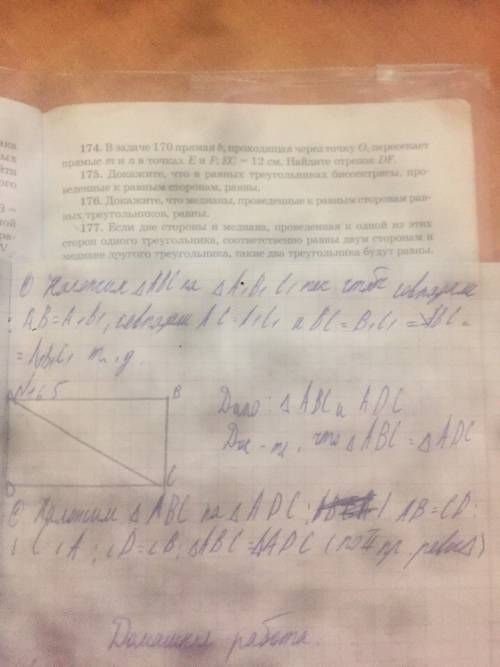 174. В задаче 170 прямая b, проходящая через точку O, пересекает
прямые m и n в точках E и F; EC = 12 см. Найдите отрезок DF.
175. Докажите, что в равных треугольниках биссектрисы, про-
веденные к равным сторонам, равны.
176. Докажите, что медианы, проведенные к равным сторонам рав-
ных треугольников, равны.
177. Если две стороны и медиана, проведенная к одной из этих
сторон одного треугольника, соответственно равны двум сторонам и
медиане другого треугольника, такие два треугольника будут равны.
Наложим △ABC на △A₁B₁C₁ так чтобы совпали
AB=A₁B₁, совпали AC=A₁C₁ и BC=B₁C₁
= A₁B₁C₁ т.д.
№165
B
Дано: △ABC и ADC
Док-ть, что △ABC = △ADC
D
C
Наложим △ABC на △ADC; AB=CD;
∠C ∠A; ∠D=∠B; △ABC=△ADC (по II пр. рав △)
Домашняя работа.